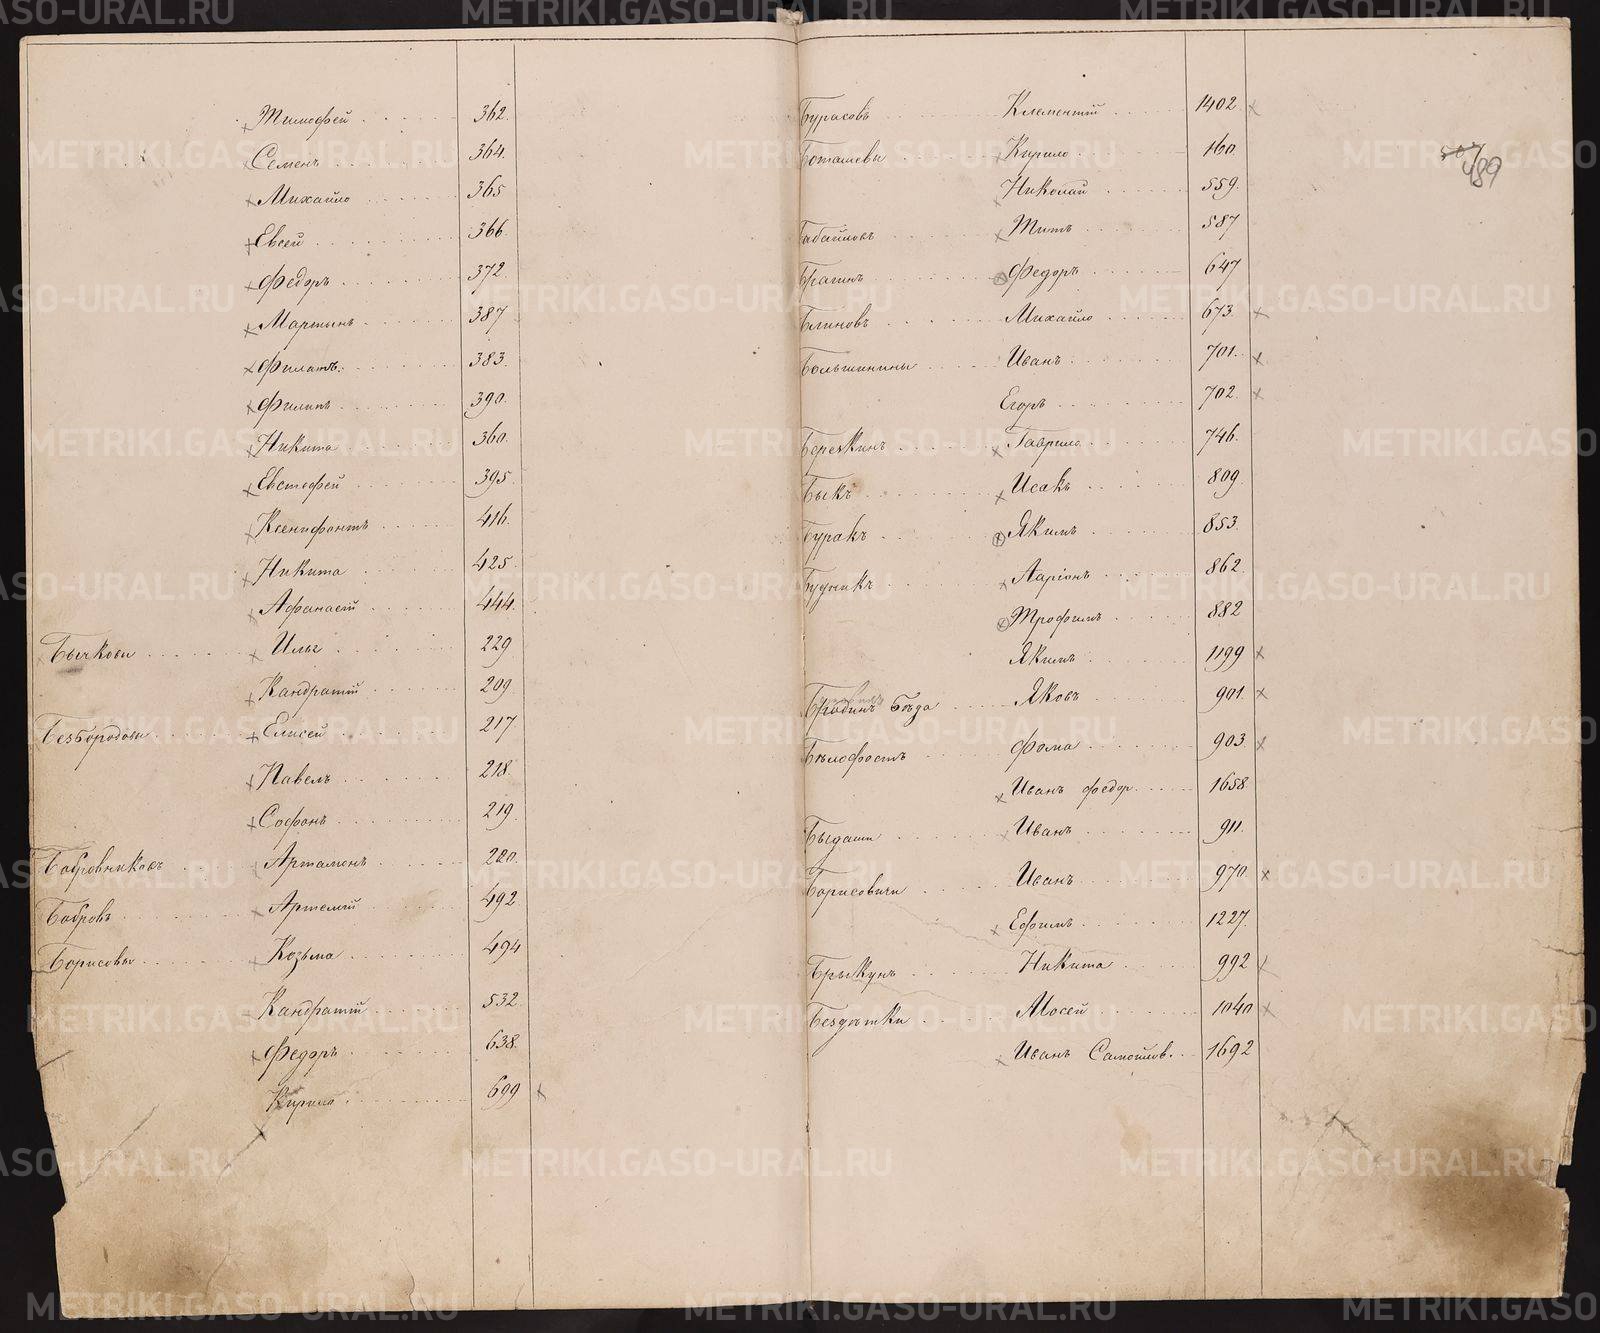 Тимофей 362.
Семенъ 364.
Михайло 365
Евсей 366.
Федоръ 372.
Мартынъ 387
Филатъ 383.
Филипъ 390.
Никита 360.
Евстефей 395.
Ксенифонтъ 416.
Никита 425.
Афанасій 444.
Бычковы Илья 229
Кандратій 209
Безбородовы Елисей 217.
Павелъ 218.
Софонъ 219.
Бобровниковъ Артамонъ 220.
Бобровъ Артемій 492.
Борисовы Козьма 494
Кандратій 532.
Федоръ 638.
Кирило 699
Бурасовъ Клементій 1402.
489
Боташевы Кирило 160.
Николай 559.
Бабайловъ Титъ 587
Брагинъ Федоръ 647
Блиновъ Михайло 673.
Большинины Иванъ 701.
Егоръ 702.
Березкинъ Гаврило 746.
Быкъ Исакъ 809.
Буракъ Якимъ 853.
Будникъ Ларіонъ 862.
Трофимъ 882
Якимъ 1199
Бѣзда Яковъ 901.
Бѣлофостъ Фома 903.
Иванъ Федор. 1658.
Быдаши Иванъ 911.
Борисовичи Иванъ 970.
Ефимъ 1227.
Брыкунъ Никита 992
Бездѣтки Мосей 1040
Иванъ Самойлов. 1692
METRIKI.GASO-URAL.RU